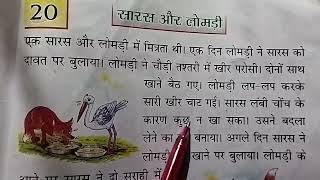 20
सारस और लोमड़ी
एक सारस और लोमड़ी में मित्रता थी। एक दिन लोमड़ी ने सारस को
दावत पर बुलाया। लोमड़ी ने चौड़ी तश्तरी में खीर परोसी। दोनों साथ
खाने बैठ गए। लोमड़ी लप-लप करके
सारी खीर चाट गई। सारस लंबी चोंच के
कारण कुछ न खा सका। उसने बदला
लेने का बनाया। अगले दिन सारस ने
लोमड़ी खाने पर बुलाया। लोमड़ी के
आने पर सारस ने दो सुराही में